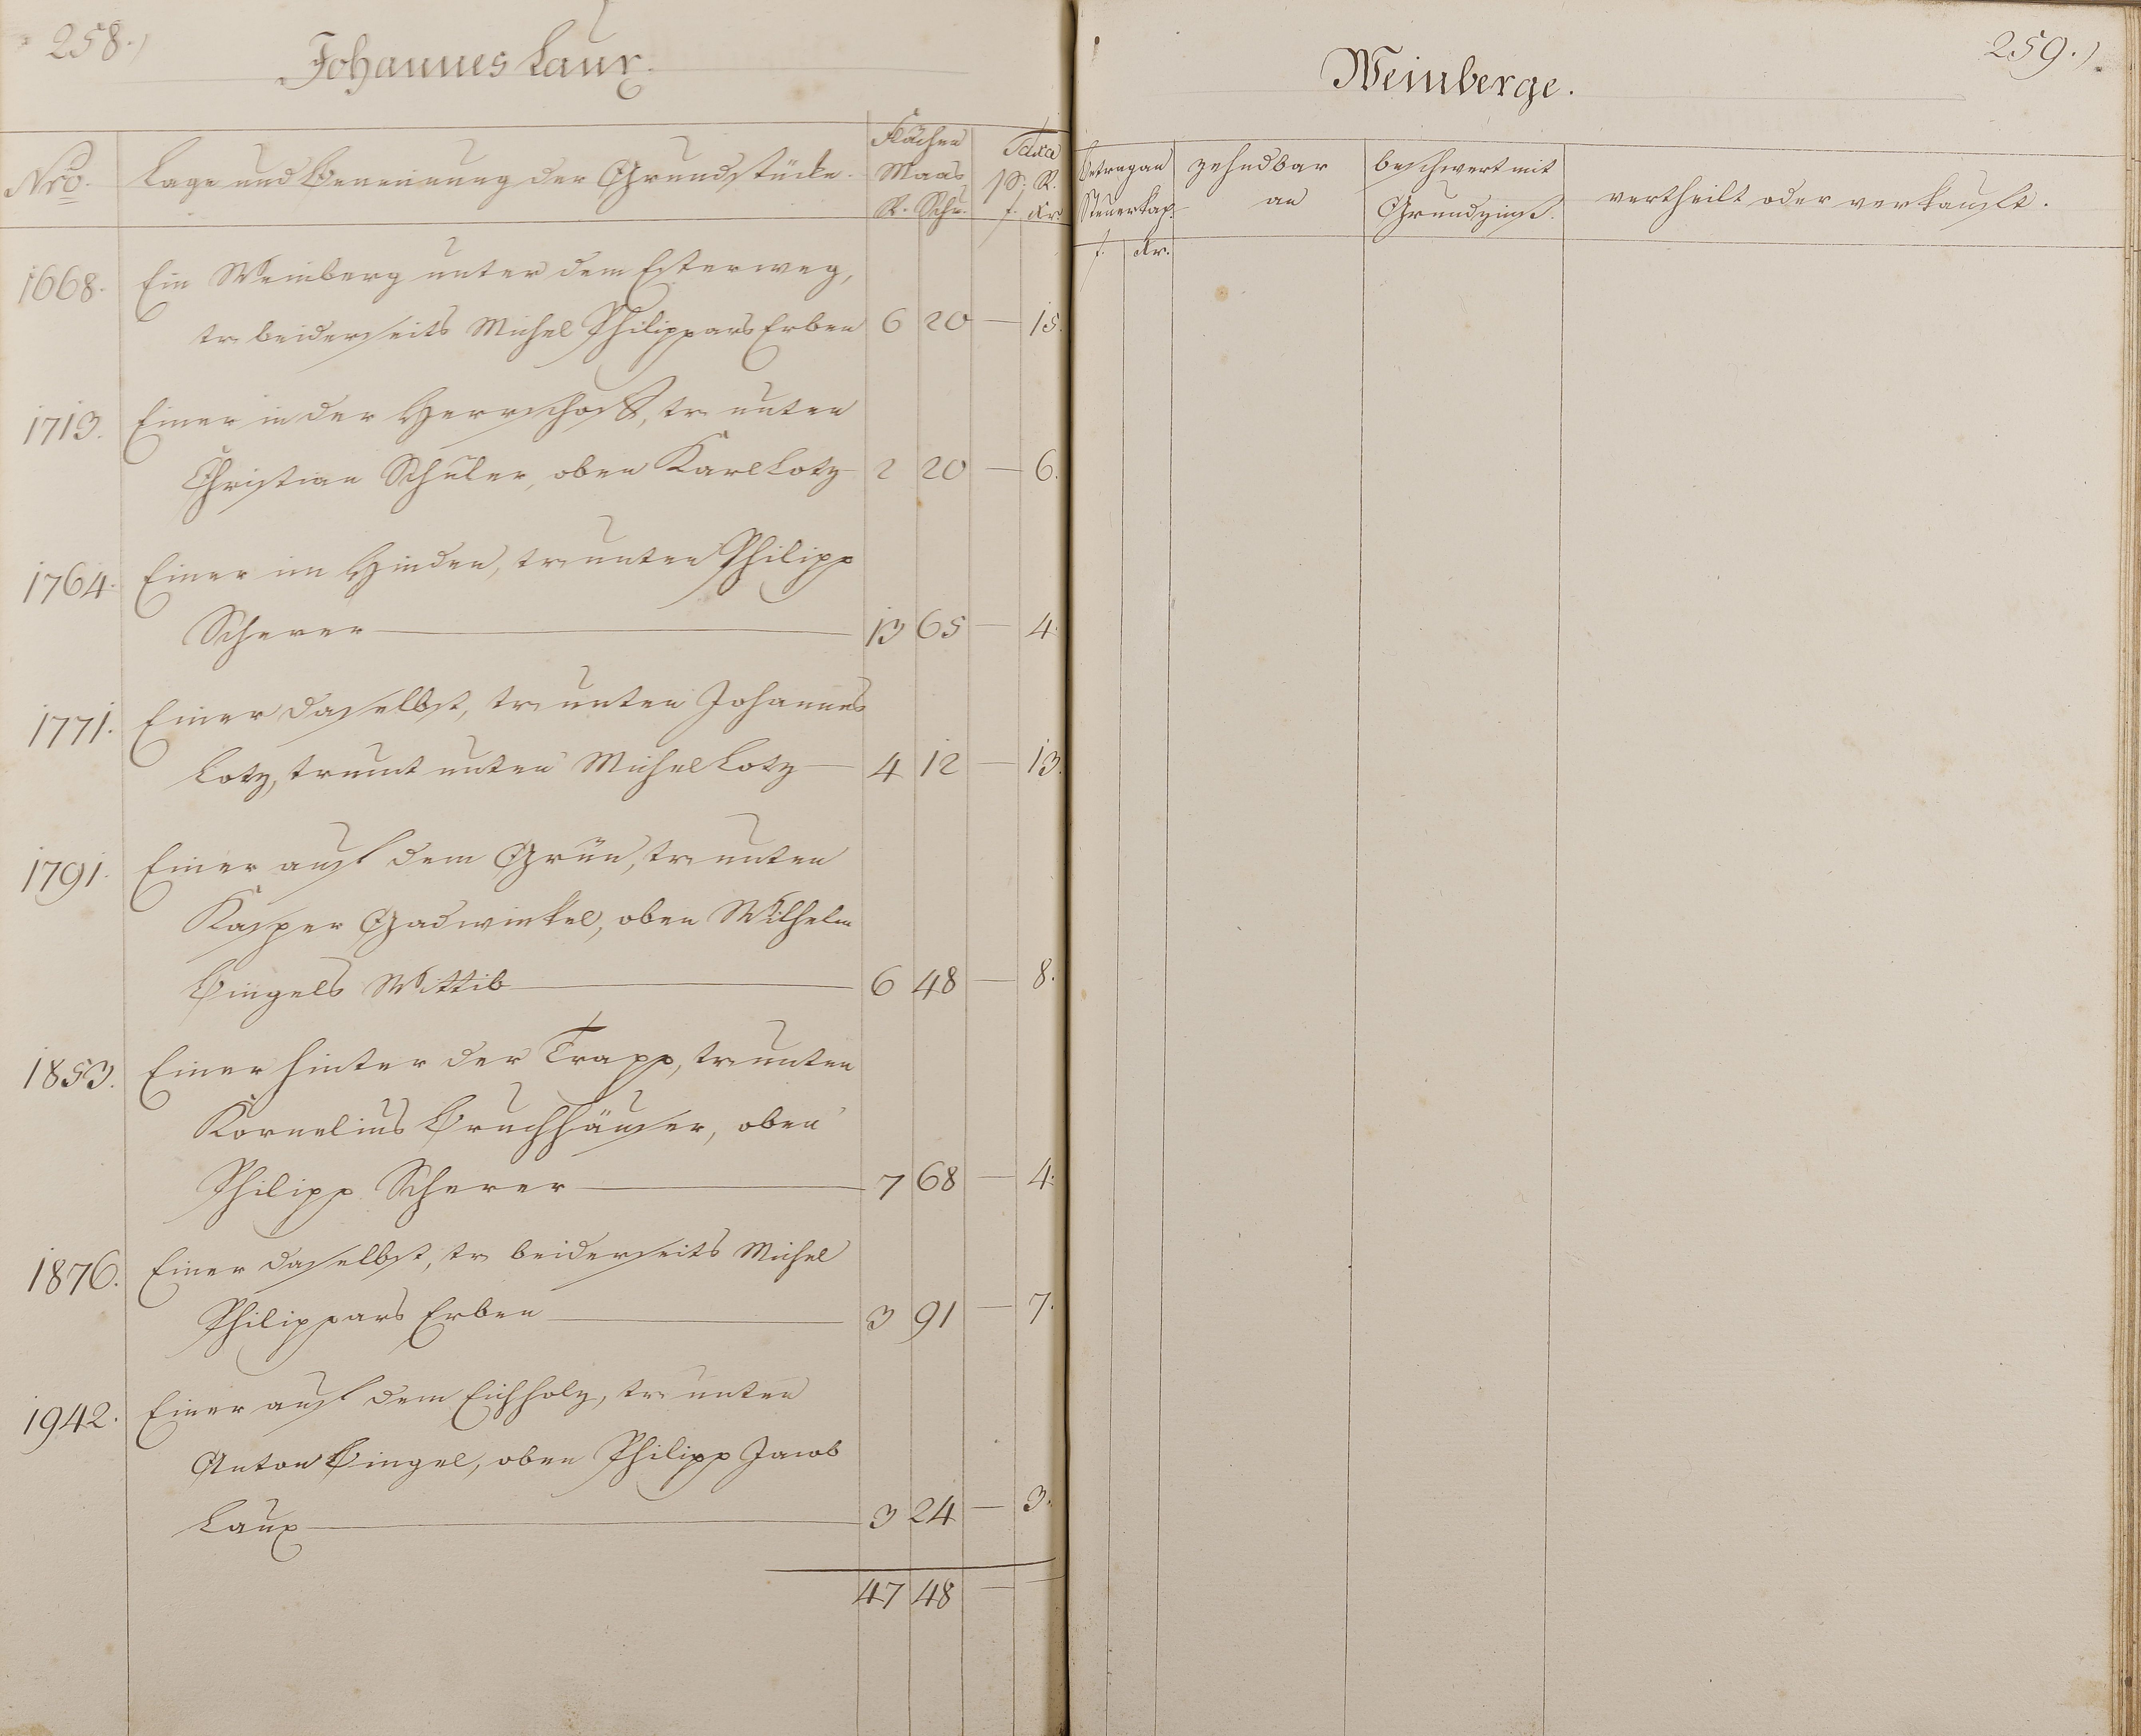 258.)
Johannes Laux.
Nro.
Lage und Benennung der Grundstücke.
Flächen
Maas
R. Sch.
Taxa
p. R.
f. Kr.
1668. Ein Weinberg unter dem Esterweg,
tr. beiderseits Michel Philippars Erben 6 20 — 15.
1713. Einer in der Herrschaft, tr. unten
Christian Schuler, oben Karl Lotz 2 20 — 6.
1764. Einer im Hinden, tr. unten Philipp
Scherer — 13 65 — 4.
1771. Einer daselbst, tr. unten Johannes
Lotz, trennt unten Michel Lotz — 4 12 — 13.
1791. Einer auf dem Grün, tr. unten
Kasper Gadwinkel, oben Wilhelm
Bingels Wittib — 6 48 — 8.
1853. Einer hinter der Trapp, tr. unten
Kornelius Bruchhäuser, oben
Philipp Scherer — 7 68 — 4.
1876. Einer daselbst, tr. beiderseits Michel
Philippars Erben — 3 91 — 7.
1942. Einer auf dem Eichholz, tr. unten
Anton Bingel, oben Philipp Jacob
Laux — 3 24 — 3.
47 48 — —
259.)
Weinberge.
betragen an
Steuerkap.
f. Kr.
zehndbar
an
beschwert mit
Grundzinß.
vertheilt oder verkauft.